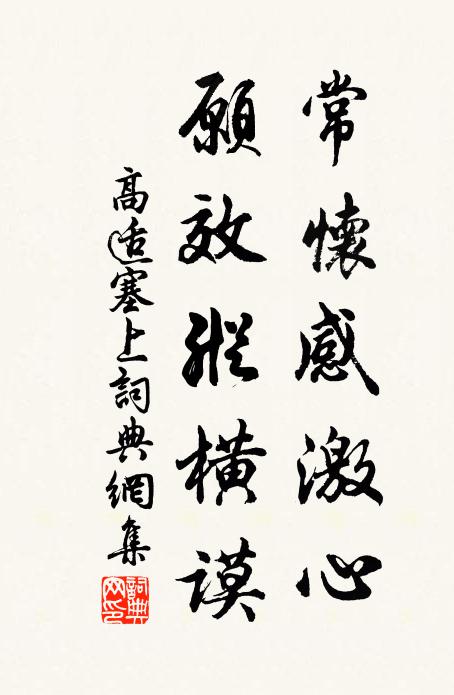 常懷感激心
願效縱橫謨
高适塞上詞典網集
詞典網印